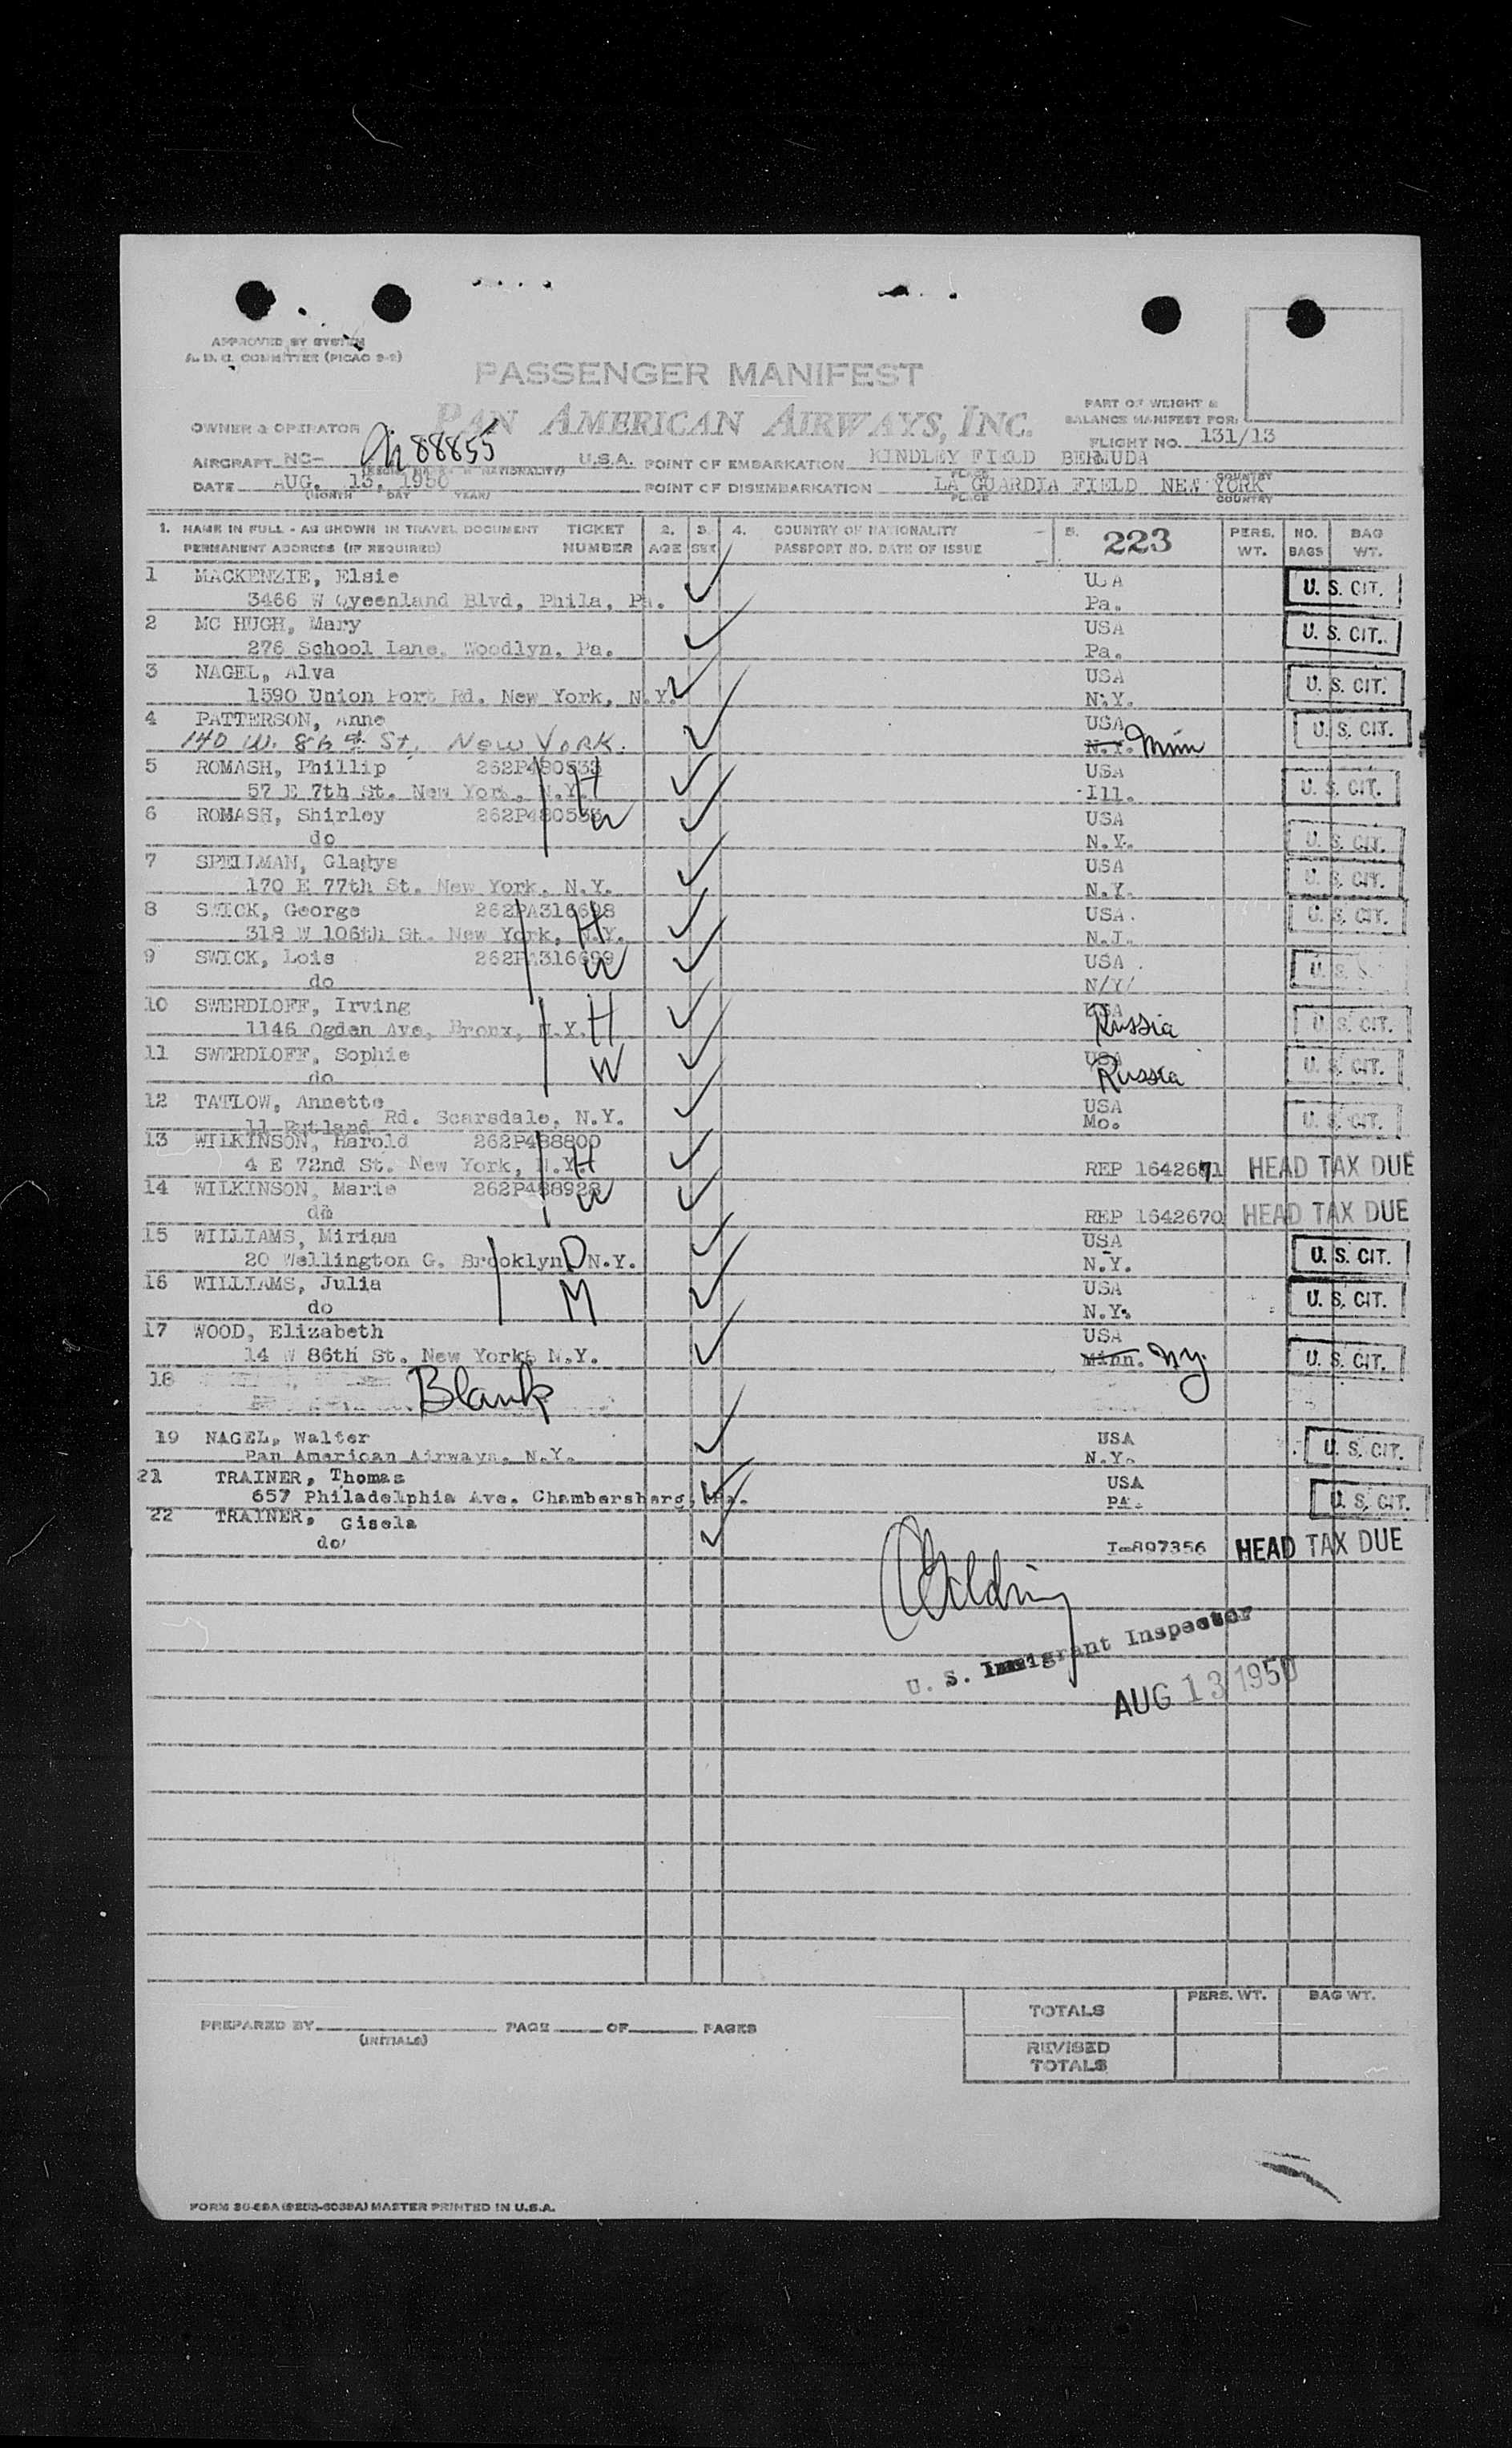 APPROVED BY SYSTEM
A. D. C. COMMITTEE (PICAO 9-2)
PASSENGER MANIFEST
PAN AMERICAN AIRWAYS, INC.
PART OF WEIGHT &
BALANCE MANIFEST FOR:
OWNER & OPERATOR
FLIGHT NO. 131/13
AIRCRAFT NC- 88855 U.S.A. POINT OF EMBARKATION KINDLEY FIELD BERMUDA
PLACE COUNTRY
DATE AUG. 13, 1950 POINT OF DISEMBARKATION LA GUARDIA FIELD NEW YORK
(MONTH DAY YEAR) PLACE COUNTRY
1. NAME IN FULL - AS SHOWN IN TRAVEL DOCUMENT TICKET 2. 3. 4. COUNTRY OF NATIONALITY 5. 223 PERS. NO. BAG
PERMANENT ADDRESS (IF REQUIRED) NUMBER AGE SEX PASSPORT NO. DATE OF ISSUE WT. BAGS WT.
1 MACKENZIE, Elsie USA U. S. CIT.
3466 W Qyeenland Blvd, Phila, Pa. Pa.
2 MC HUGH, Mary USA U. S. CIT.
276 School Lane, Woodlyn, Pa. Pa.
3 NAGEL, Alva USA U. S. CIT.
1590 Union Port Rd. New York, N.Y. N.Y.
4 PATTERSON, Anne USA U. S. CIT.
140 W. 86th St. New York. N.Y. Minn
5 ROMASH, Phillip 262P480533 USA U. S. CIT.
57 E 7th St. New York, N.Y. H Ill.
6 ROMASH, Shirley 262P480533 W USA
do N.Y. U. S. CIT.
7 SPELLMAN, Gladys USA U. S. CIT.
170 E 77th St. New York, N.Y. N.Y.
8 SWICK, George 262PA316698 H USA U. S. CIT.
318 W 106th St. New York, N.Y. N.J.
9 SWICK, Lois 262PA316699 W USA U. S.
do N/Y/
10 SWERDLOFF, Irving H USA U. S. CIT.
1146 Ogden Ave, Bronx, N.Y. Russia
11 SWERDLOFF, Sophie W USA U. S. CIT.
do Russia
12 TATLOW, Annette USA U. S. CIT.
11 Rutland Rd. Scarsdale, N.Y. Mo.
13 WILKINSON, Harold 262P488800
4 E 72nd St. New York, N.Y. H REP 1642671 HEAD TAX DUE
14 WILKINSON, Marie 262P488928 W
do REP 1642670 HEAD TAX DUE
15 WILLIAMS, Miriam USA U. S. CIT.
20 Wellington G. Brooklyn D N.Y. N.Y.
16 WILLIAMS, Julia M USA U. S. CIT.
do N.Y.
17 WOOD, Elizabeth USA U. S. CIT.
14 W 86th St. New York, N.Y. Minn. NY.
18 Blank
19 NAGEL, Walter USA U. S. CIT.
Pan American Airways, N.Y. N.Y.
21 TRAINER, Thomas USA U. S. CIT.
657 Philadelphia Ave. Chambersberg, Pa. PA.
22 TRAINER, Gisela
do I-897356 HEAD TAX DUE
U. S. Immigrant Inspector
AUG 13 1950
TOTALS PERS. WT. BAG WT.
PREPARED BY (INITIALS) PAGE OF PAGES
REVISED
TOTALS
MASTER PRINTED IN U.S.A.